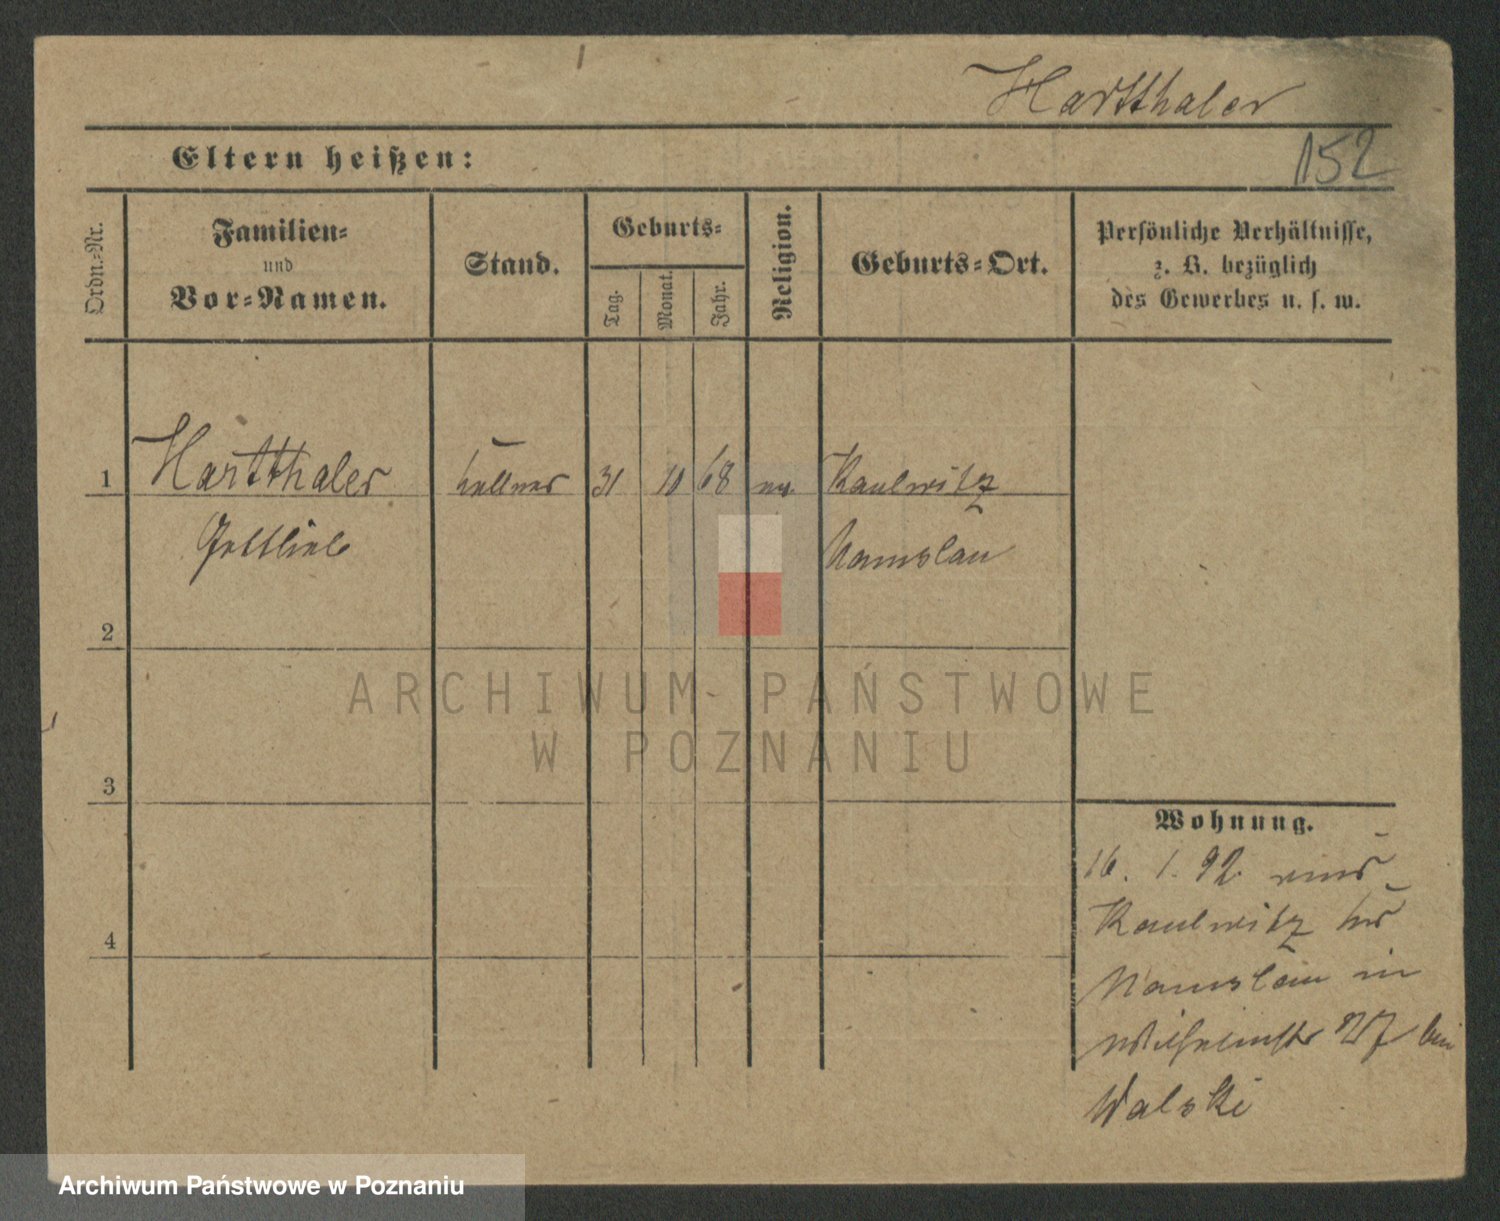 Hartthaler
152
Eltern heißen:
Ordn.-Nr.
Familien-
und
Vor-Namen.
Stand.
Geburts-
Tag.
Monat.
Jahr.
Religion.
Geburts-Ort.
Persönliche Verhältnisse,
z. B. bezüglich
des Gewerbes u. s. w.
1 Hartthaler Kellner 31 10 68 ev. Kaulwitz
Gottlieb Namslau
2
3
4
Wohnung.
16. 1. 92. aus
Kaulwitz Krs
Namslau in
Wilhelmstr 27 bei
Walski
ARCHIWUM PAŃSTWOWE
W POZNANIU
Archiwum Państwowe w Poznaniu